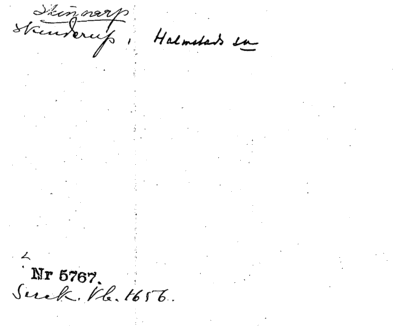 Skinnarp
Skinderup, Halmstads sn
Nr 5767.
Vb. 1656.